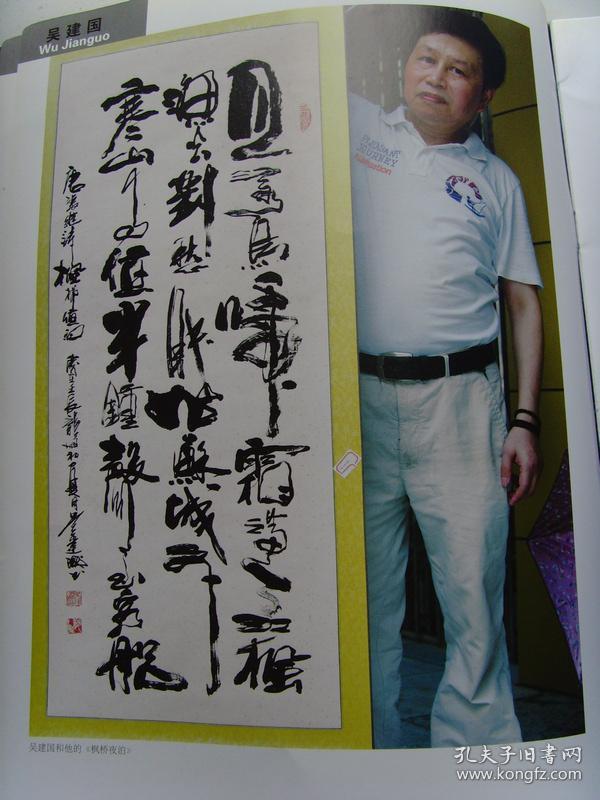 吴建国
Wu Jianguo
月落烏啼霜滿天江楓
漁火對愁眠姑蘇城外
寒山寺夜半鐘聲到客船
唐張繼詩 楓橋夜泊
PLEASANT
JOURNEY
吴建国和他的《枫桥夜泊》
孔夫子旧书网
www.kongfz.com